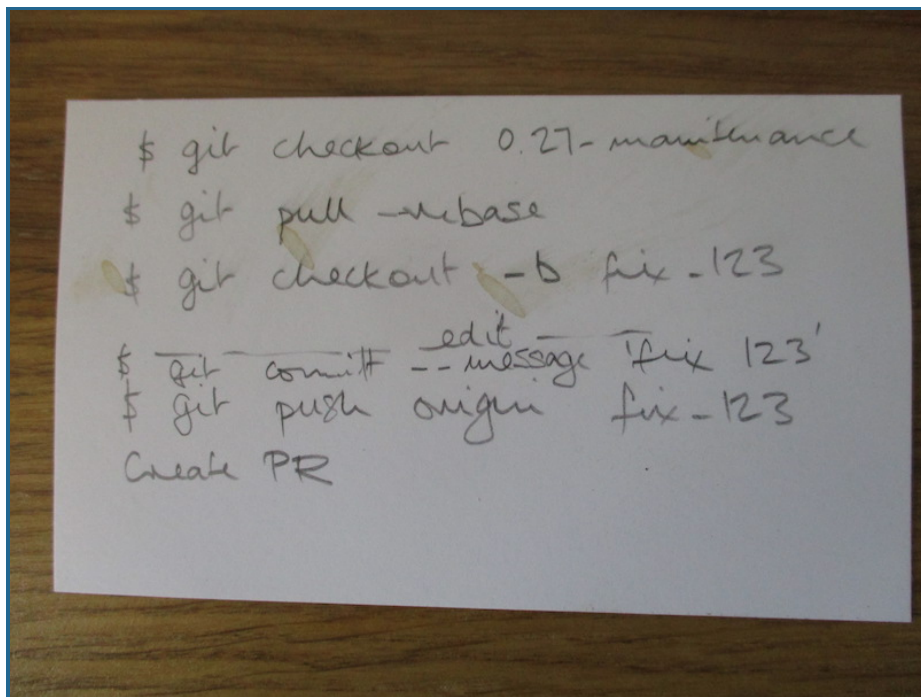 $ git checkout 0.27-maintenance
$ git pull --rebase
$ git checkout -b fix-123
edit
$ git commit --message 'fix 123'
$ git push origin fix-123
Create PR